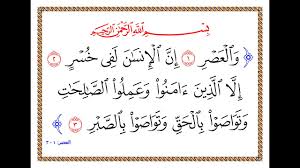 بِسْمِ اللَّهِ الرَّحْمَٰنِ الرَّحِيمِ
وَٱلْعَصْرِ ١ إِنَّ ٱلْإِنسَٰنَ لَفِى خُسْرٍ ٢
إِلَّا ٱلَّذِينَ ءَامَنُوا۟ وَعَمِلُوا۟ ٱلصَّٰلِحَٰتِ
وَتَوَاصَوْا۟ بِٱلْحَقِّ وَتَوَاصَوْا۟ بِٱلصَّبْرِ ٣
العصر: ١-٣